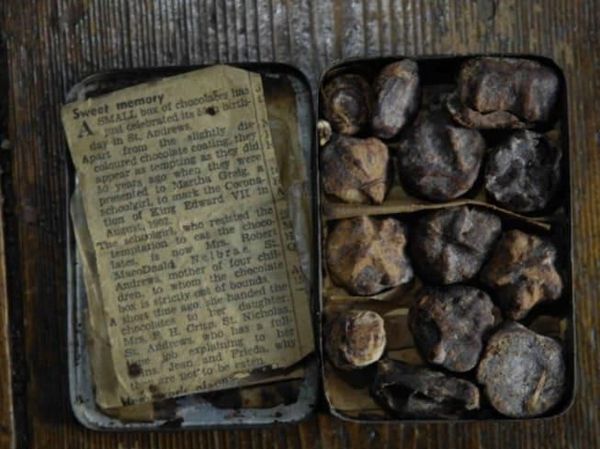 Sweet memory
A SMALL box of chocolates has
just celebrated its birth-
day in St. Andrews.
Apart from the slightly dis-
coloured chocolate coating, they
appear as tempting as they did
50 years ago when they were
presented to Martha Greig, a
schoolgirl, to mark the Corona-
tion of King Edward VII in
August, 1902.
The schoolgirl, who resisted the
temptation to eat the choco-
lates, is now Mrs. Robert
MacDonald, St.
Andrews, mother of four chil-
dren, to whom the chocolate
box is strictly out of bounds.
A short time ago she handed the
chocolates to her daughter,
Mrs. H. Crisp, St. Nicholas,
St. Andrews, who has a full-
time job explaining to her
Jean and Frieda, why
they are not to be eaten.